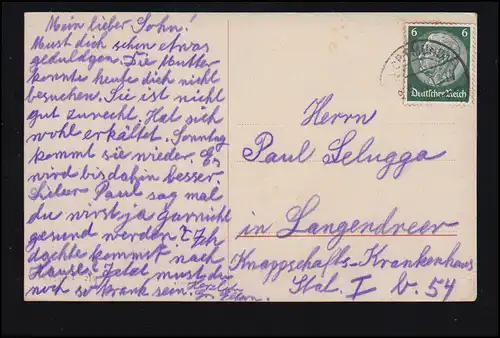 Mein lieber Sohn!
Must dich schon etwas
geduldgen. Die Mutter
konnte heute dich nicht
besuchen. Sie ist nicht
gut zurecht. Hat sich
wohl erkältet. Sonntag
kommt sie wieder. Es
wird bis dahin besser.
Lieber Paul sag mal
du wirst ja garnicht
gesund werden? Ich
dachte kommst nach
Hause. Jetzt must du
noch so krank sein. Herzl.
Gr.
6 6
Deutsches Reich
Herrn
Paul Selugga
in Langendreer
Knappschafts-Krankenhaus
Stat. I b. 54